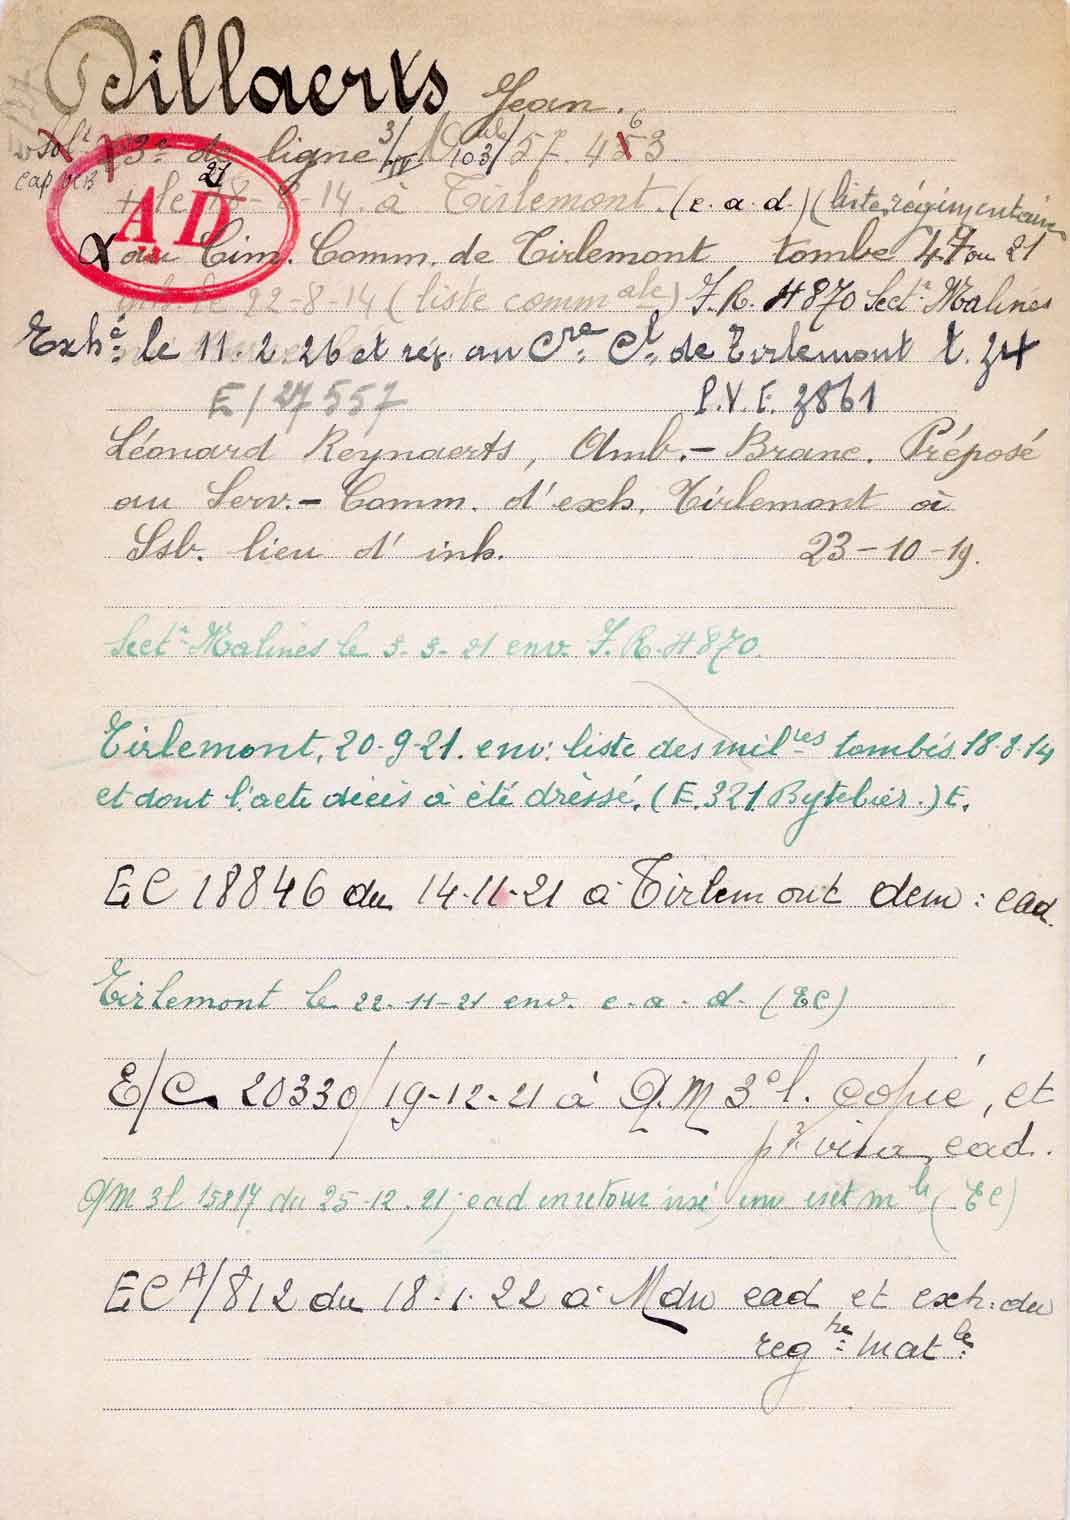 Dillaerts Jean.
Solt 3e de ligne 3/IV 103/57. 463
Cap
AD
+ le 18-8-14. à Tirlemont. (e.a.d.) (liste régimentaire
au Cim. Comm. de Tirlemont tombe 47 ou 21
le 22-8-14 (liste commale) F.R. H870 Sectn Malines
Exhé le 11.2.26 et ré. au Cre Cl de Tirlemont t. 74
E/27557 P.V.E. 2861
Léonard Reynaerts, Amb.- Branc. Préposé
au Serv.- Comm. d'exh. Tirlemont où
Ssb. lieu d'inh. 23-10-19.
Sectn Malines le 3-3-21 env. F.R. H870.
Tirlemont, 20-9-21. env: liste des milres tombés 18-8-14
et dont l'acte décès à été dressé. (E.321 Bytebier.) t.
EC 18846 du 14-11-21 à Tirlemont dem: ead.
Tirlemont le 22-11-21 env. e.a.d. (EC)
E/C. 20330/19-12-21 à QM 3e l. copié, et
pr visa ead.
QM 3l 15817 du 25-12-21; ead en retour visé, env extt mle (EC)
EC A/812 du 18.1.22 à Mdn ead et exh. du
regtre matle